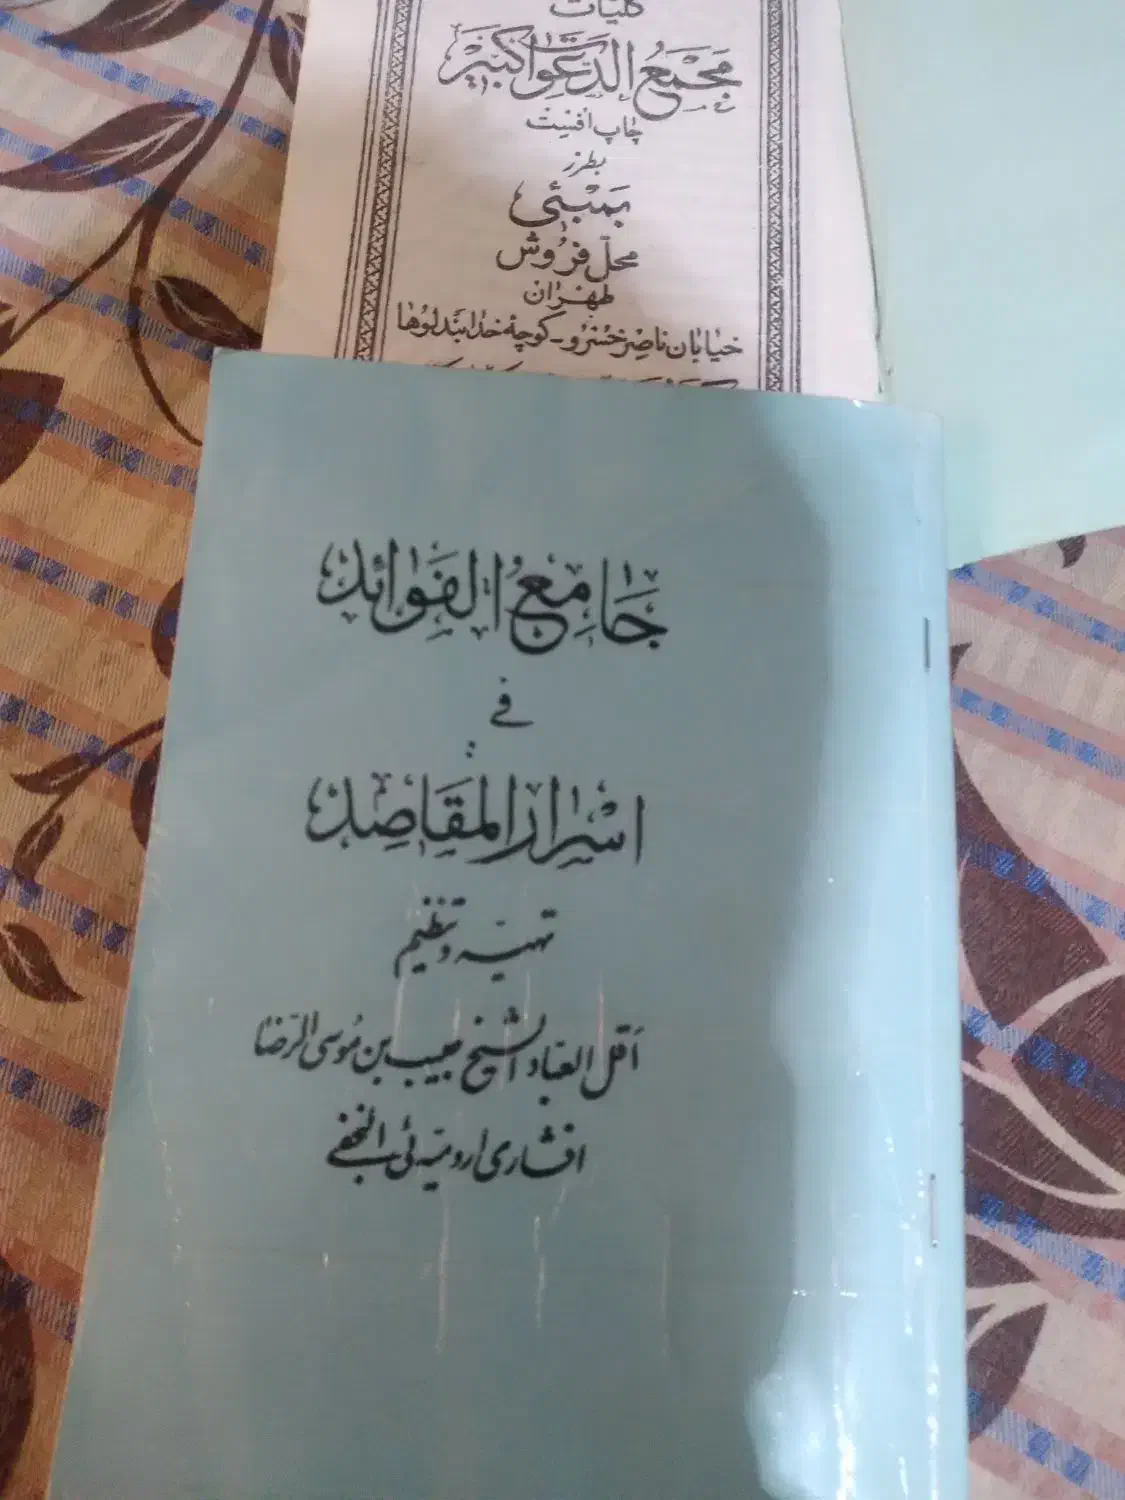 کلیات
مجمع الدعوات کبیر
چاپ افست
بطرز
بمبئی
محل فروش
طهران
خیابان ناصرخسرو - کوچه خدابنده‌لوها
جَامِعُ الفَوائد
في
اسرار المقاصد
تهیه و تنظیم
اقل العباد الشیخ حبیب بن موسی الرضا
افشاری ارومیه ئی النجفی